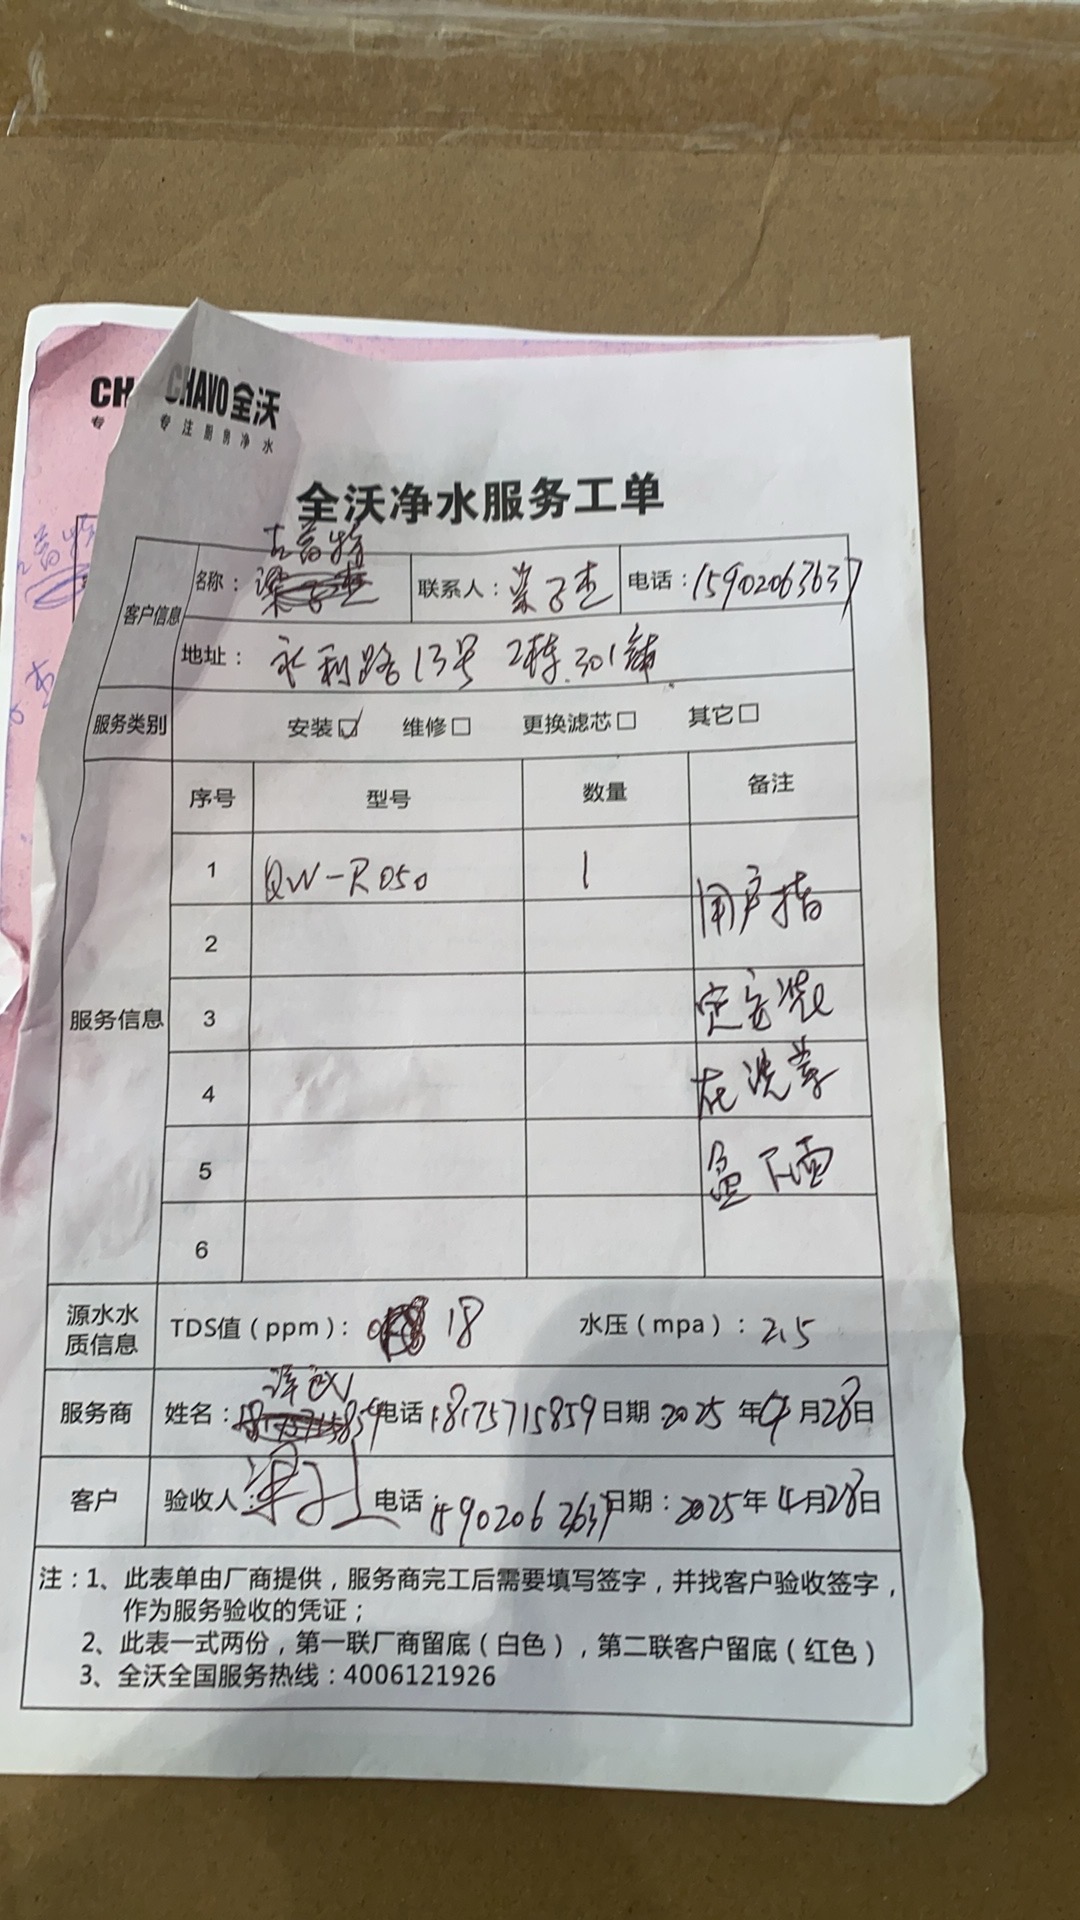 CH
CHAVO全沃
专
专注厨房净水
全沃净水服务工单
客户信息
名称：古普特
联系人：梁子杰
电话：15902063637
地址：永利路13号 2栋301铺
服务类别
安装☑ 维修□ 更换滤芯□ 其它□
服务信息
序号 型号 数量 备注
1 QW-R050 1
用户指
2
3 定安装
4 在洗拳
5 盆下面
6
源水水质信息
TDS值（ppm）：18 水压（mpa）：2.5
服务商 姓名： 电话 18175715859 日期 2025 年 4 月 28 日
客户 验收人：梁子杰 电话：15902063637 日期：2025年 4月28日
注：1、此表单由厂商提供，服务商完工后需要填写签字，并找客户验收签字，
作为服务验收的凭证；
2、此表一式两份，第一联厂商留底（白色），第二联客户留底（红色）
3、全沃全国服务热线：4006121926